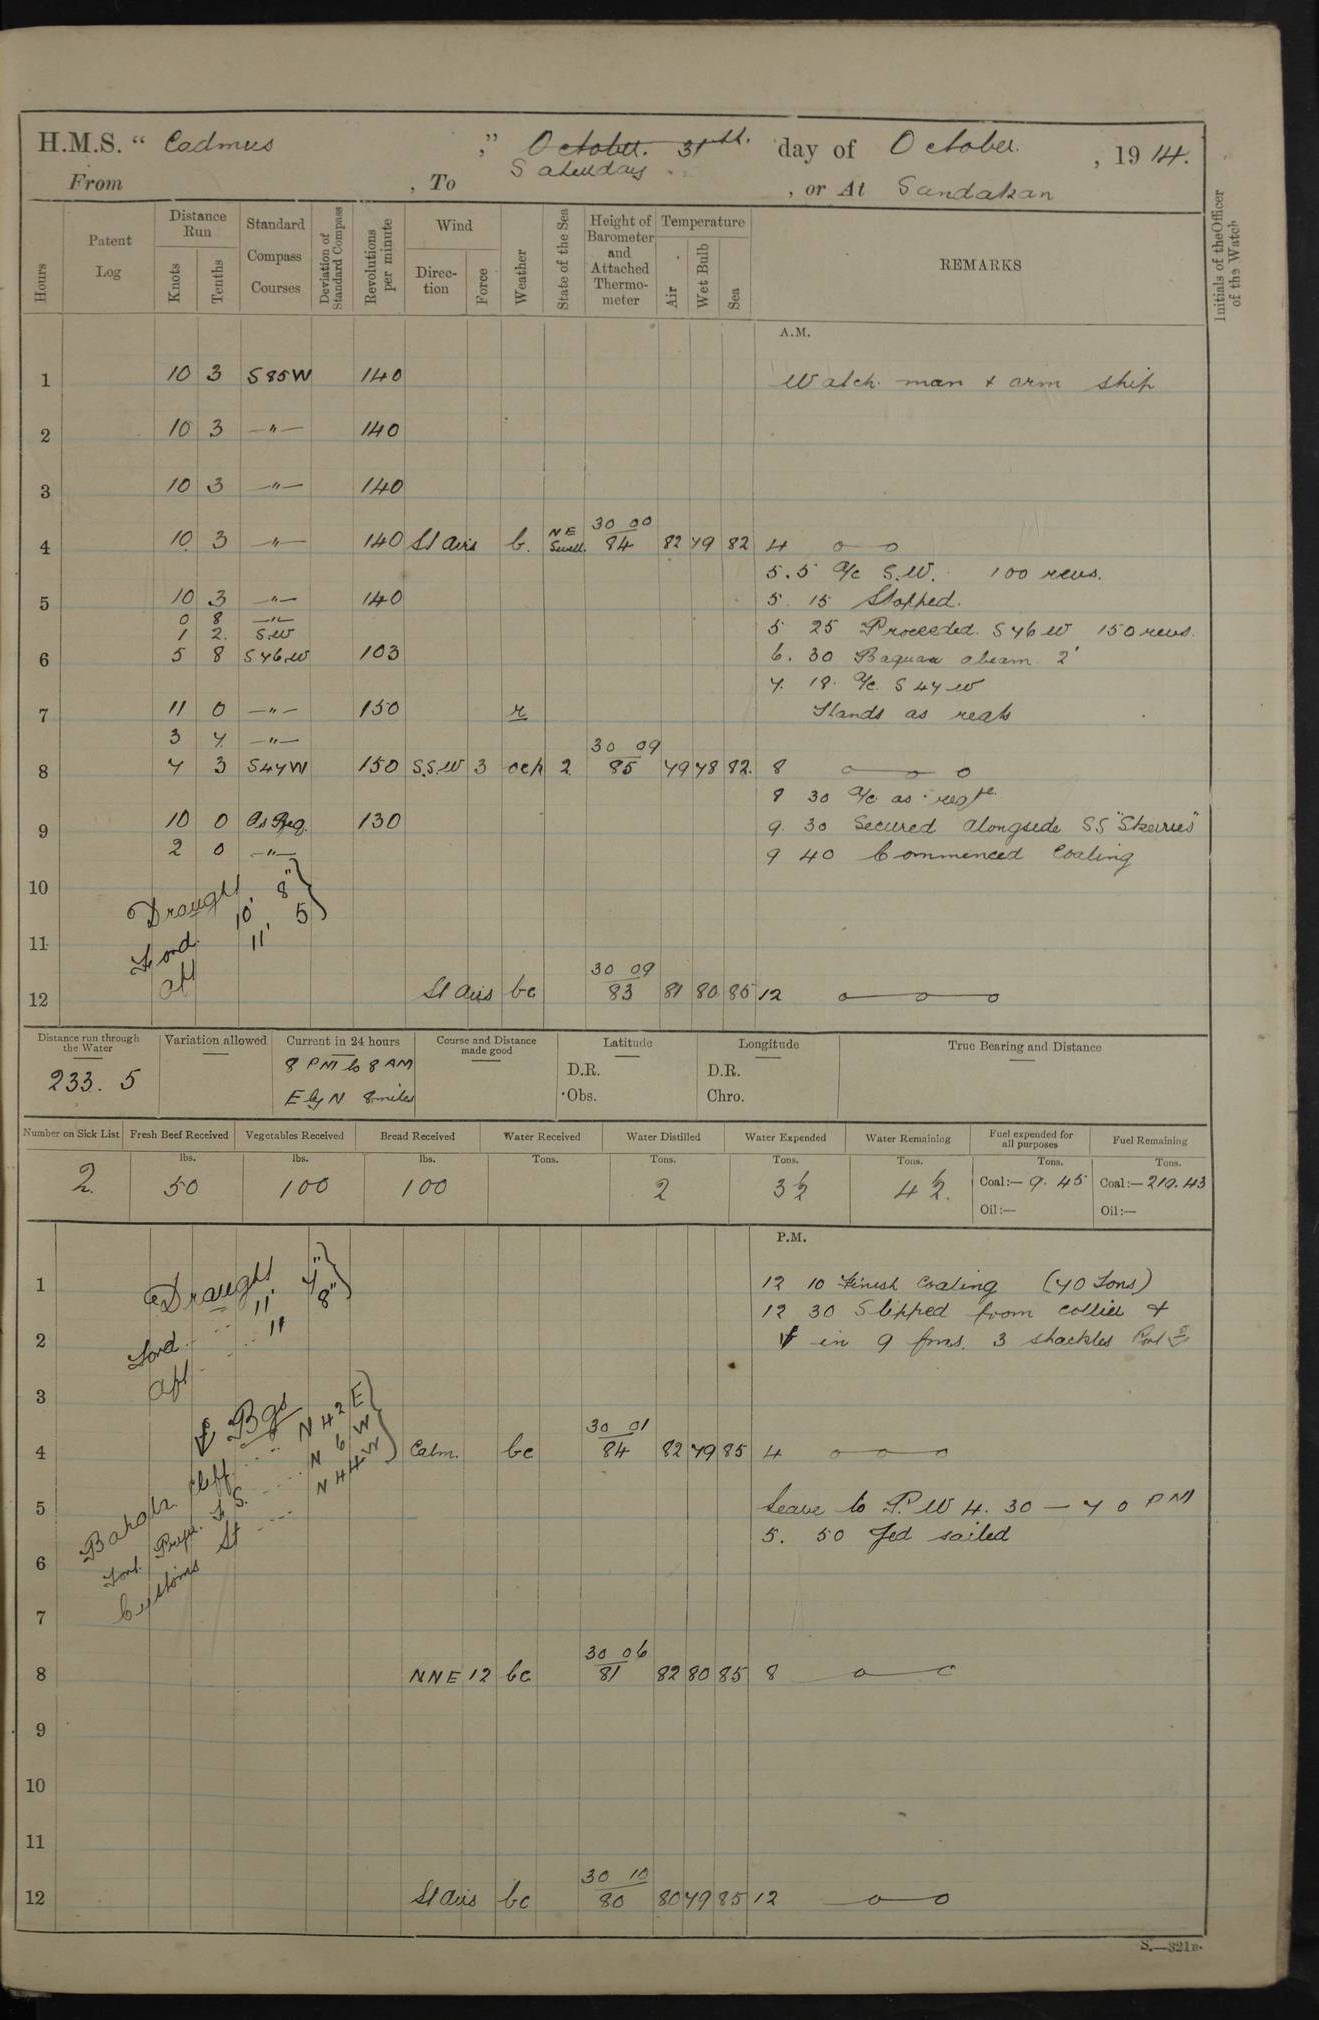 H.M.S. “ Cadmus ,” October. 31st. day of October. , 1914.
Saturday
From , To , or At Sandakan
Hours
Patent Log
Distance Run
Knots
Tenths
Standard Compass Courses
Deviation of Standard Compass
Revolutions per minute
Wind
Direction
Force
Weather
State of the Sea
Height of Barometer and Attached Thermometer
Temperature
Air
Wet Bulb
Sea
REMARKS
Initials of the Officer of the Watch
A.M.
1 10 3 S85W 140 Watch. man & arm ship
2 10 3 —"— 140
3 10 3 —"— 140
4 10 3 —"— 140 Lt airs b. NE Swell. 30 00 84 82 79 82 4
5.5 A/c S.W. 100 revs.
5 10 3 —"— 140 5. 15 Stopped.
0 8 —"—
1 2. S.W 5 25 Proceeded. S76W 150 revs.
6 5 8 S76W 103 6. 30 Baguan abeam 2'
7. 18. A/c. S47W
7 11 0 —"— 150 r Hands as reqts
3 7 —"—
8 7 3 S47W 150 S.S.W 3 ocp 2 30 09 85 79 78 82. 8
8 30 A/c as reqte
9 10 0 As Req. 130 9. 30 Secured alongside SS "Skerries"
2 0 —"— 9 40 Commenced Coaling
10
Draught
Ford. 10' 8"
Aft 11' 5
11
12 Lt airs bc 30 09 83 81 80 85 12
Distance run through the Water
Variation allowed
Current in 24 hours
Course and Distance made good
Latitude
Longitude
True Bearing and Distance
233. 5
8 PM to 8 AM
E by N 8 miles
D.R.
Obs.
D.R.
Chro.
Number on Sick List
Fresh Beef Received
Vegetables Received
Bread Received
Water Received
Water Distilled
Water Expended
Water Remaining
Fuel expended for all purposes
Fuel Remaining
lbs. lbs. lbs. Tons. Tons. Tons. Tons. Tons. Tons.
2. 50 100 100 2 3½ 4½. Coal:— 9. 45 Coal:— 219.43
Oil:— Oil:—
P.M.
Draught
Ford. 11' 7"
Aft 11 8"
1 12 10 Finish Coaling (70 Tons)
12 30 Slipped from collier &
2 in 9 fms. 3 shackles Port
3
Bgs
Bahala Cliff N42E
Font. F.S. N 6 W
Customs St N44W
4 Calm. bc 30 01 84 82 79 85 4
5 Leave to P.W 4. 30 — 7 0 PM
5. 50 Jed sailed
6
7
8 NNE 12 bc 30 06 81 82 80 85 8
9
10
11
12 Lt airs bc 30 10 80 80 79 85 12
S.—321B.